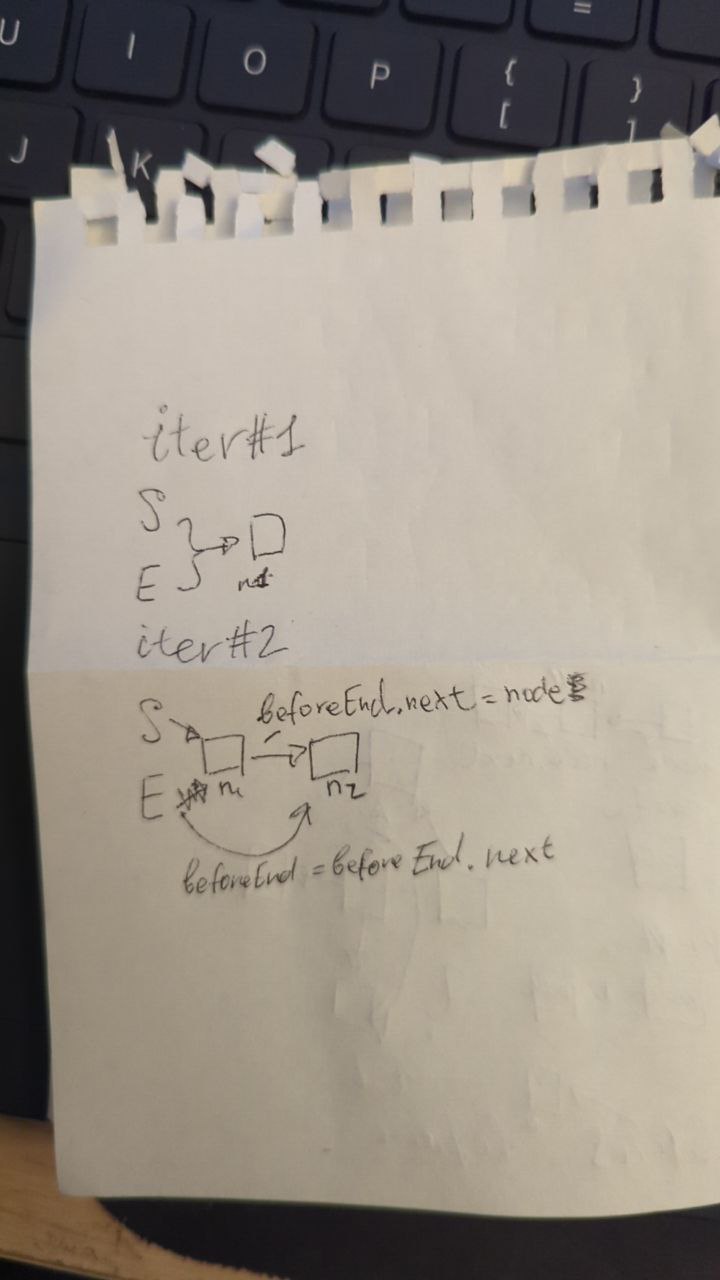 U I O P { [ } ] =
J K
iter#1
S
E
n1
iter#2
beforeEnd.next = node
S
E n1 n2
beforeEnd = beforeEnd.next